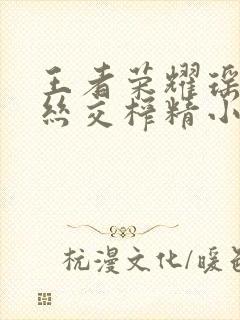 王者荣耀瑶
丝交榨精小
杭漫文化/暖